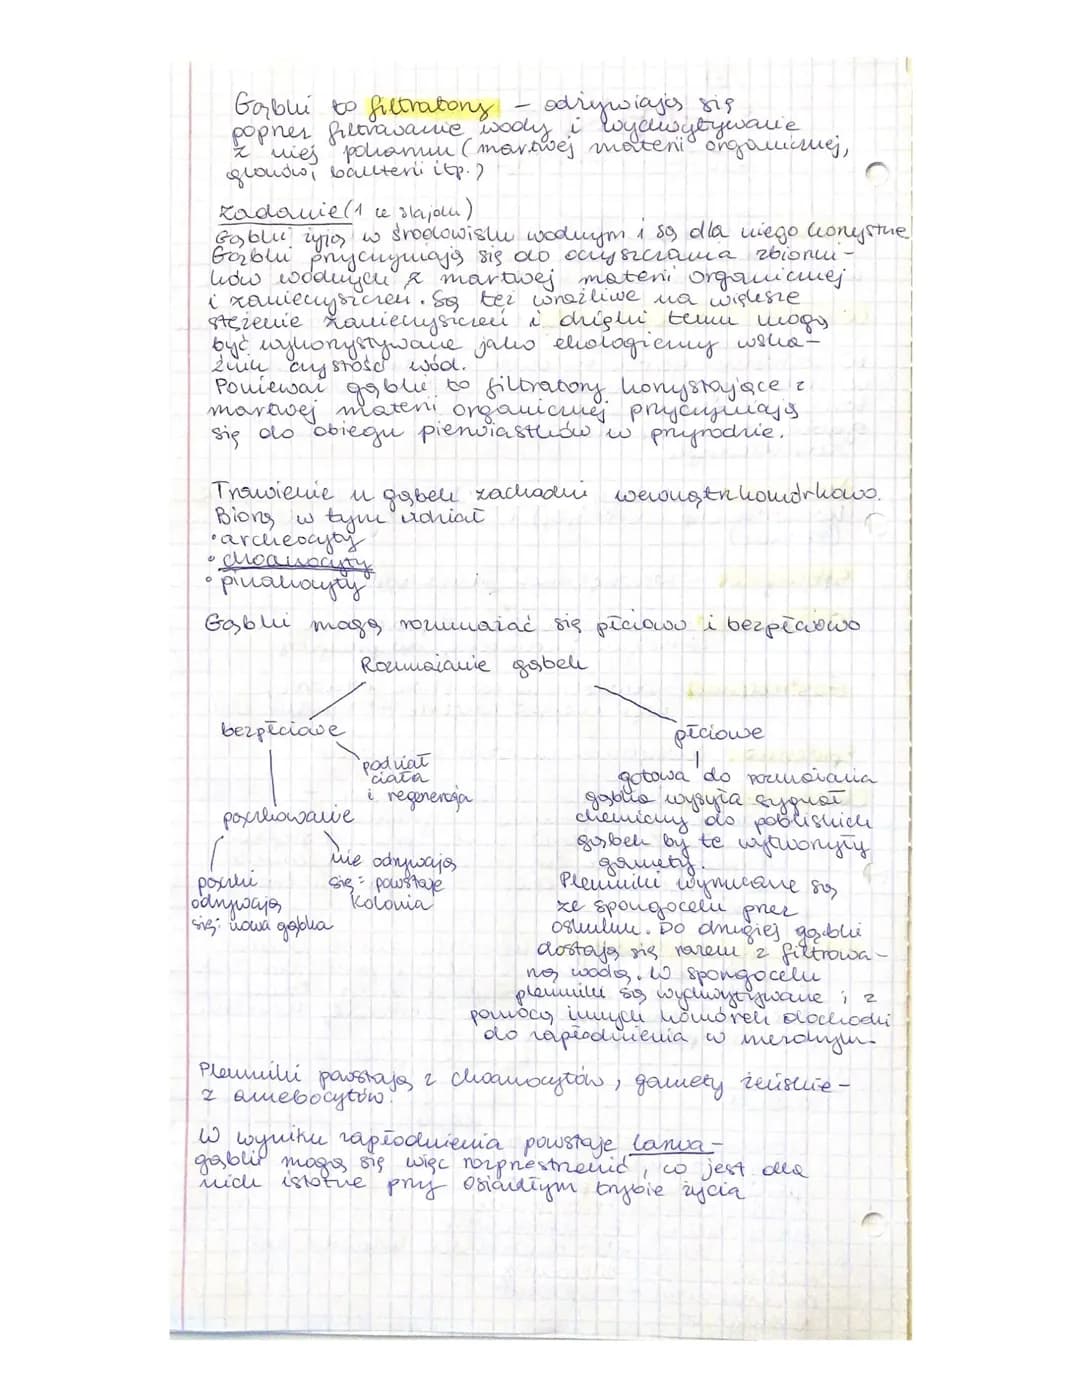 Gąbki to filtratorzy - odżywiają się
poprzez filtrowanie wody i wychwytywanie
z niej pokarmu (martwej materii organicznej,
glonów, bakterii itp.)
Zadanie (1 ze slajdu)
Gąbki żyją w środowisku wodnym i są dla niego korzystne
Gąbki przyczyniają się do oczyszczania zbiorni-
ków wodnych z martwej materii organicznej
i zanieczyszczeń. Są też wrażliwe na większe
stężenie zanieczyszczeń i dzięki temu mogą
być wykorzystywane jako ekologiczny wskaź-
źnik czystości wód.
Ponieważ gąbki to filtratorzy korzystające z
martwej materii organicznej przyczyniają
się do obiegu pierwiastków w przyrodzie.
Trawienie u gąbek zachodzi wewnątrzkomórkowo.
Biorą w tym udział
• archeocyty
• choanocyty
• pinakocyty
Gąbki mogą rozmnażać się płciowo i bezpłciowo
Rozmnażanie gąbek
bezpłciowe
podział
ciała
i regeneracja
pączkowanie
pączki
odrywają
się: nowa gąbka
nie odrywają
się = powstaje
kolonia
płciowe
gotowa do rozmnażania
gąbka wysyła sygnał
chemiczny do pobliskich
gąbek by te wytworzyły
gamety.
Plemniki wyrzucane są
ze spongocelu przez
oskulum. Do drugiej gąbki
dostają się razem z filtrowa-
ną wodą. W spongocelu
plemniki są wychwytywane i z
pomocą innych komórek dochodzi
do zapłodnienia w mezohylu.
Plemniki powstają z choanocytów, gamety żeńskie -
z amebocytów.
W wyniku zapłodnienia powstaje larwa -
gąbki mogą się więc rozprzestrzenić, co jest dla
nich istotne przy osiadłym trybie życia